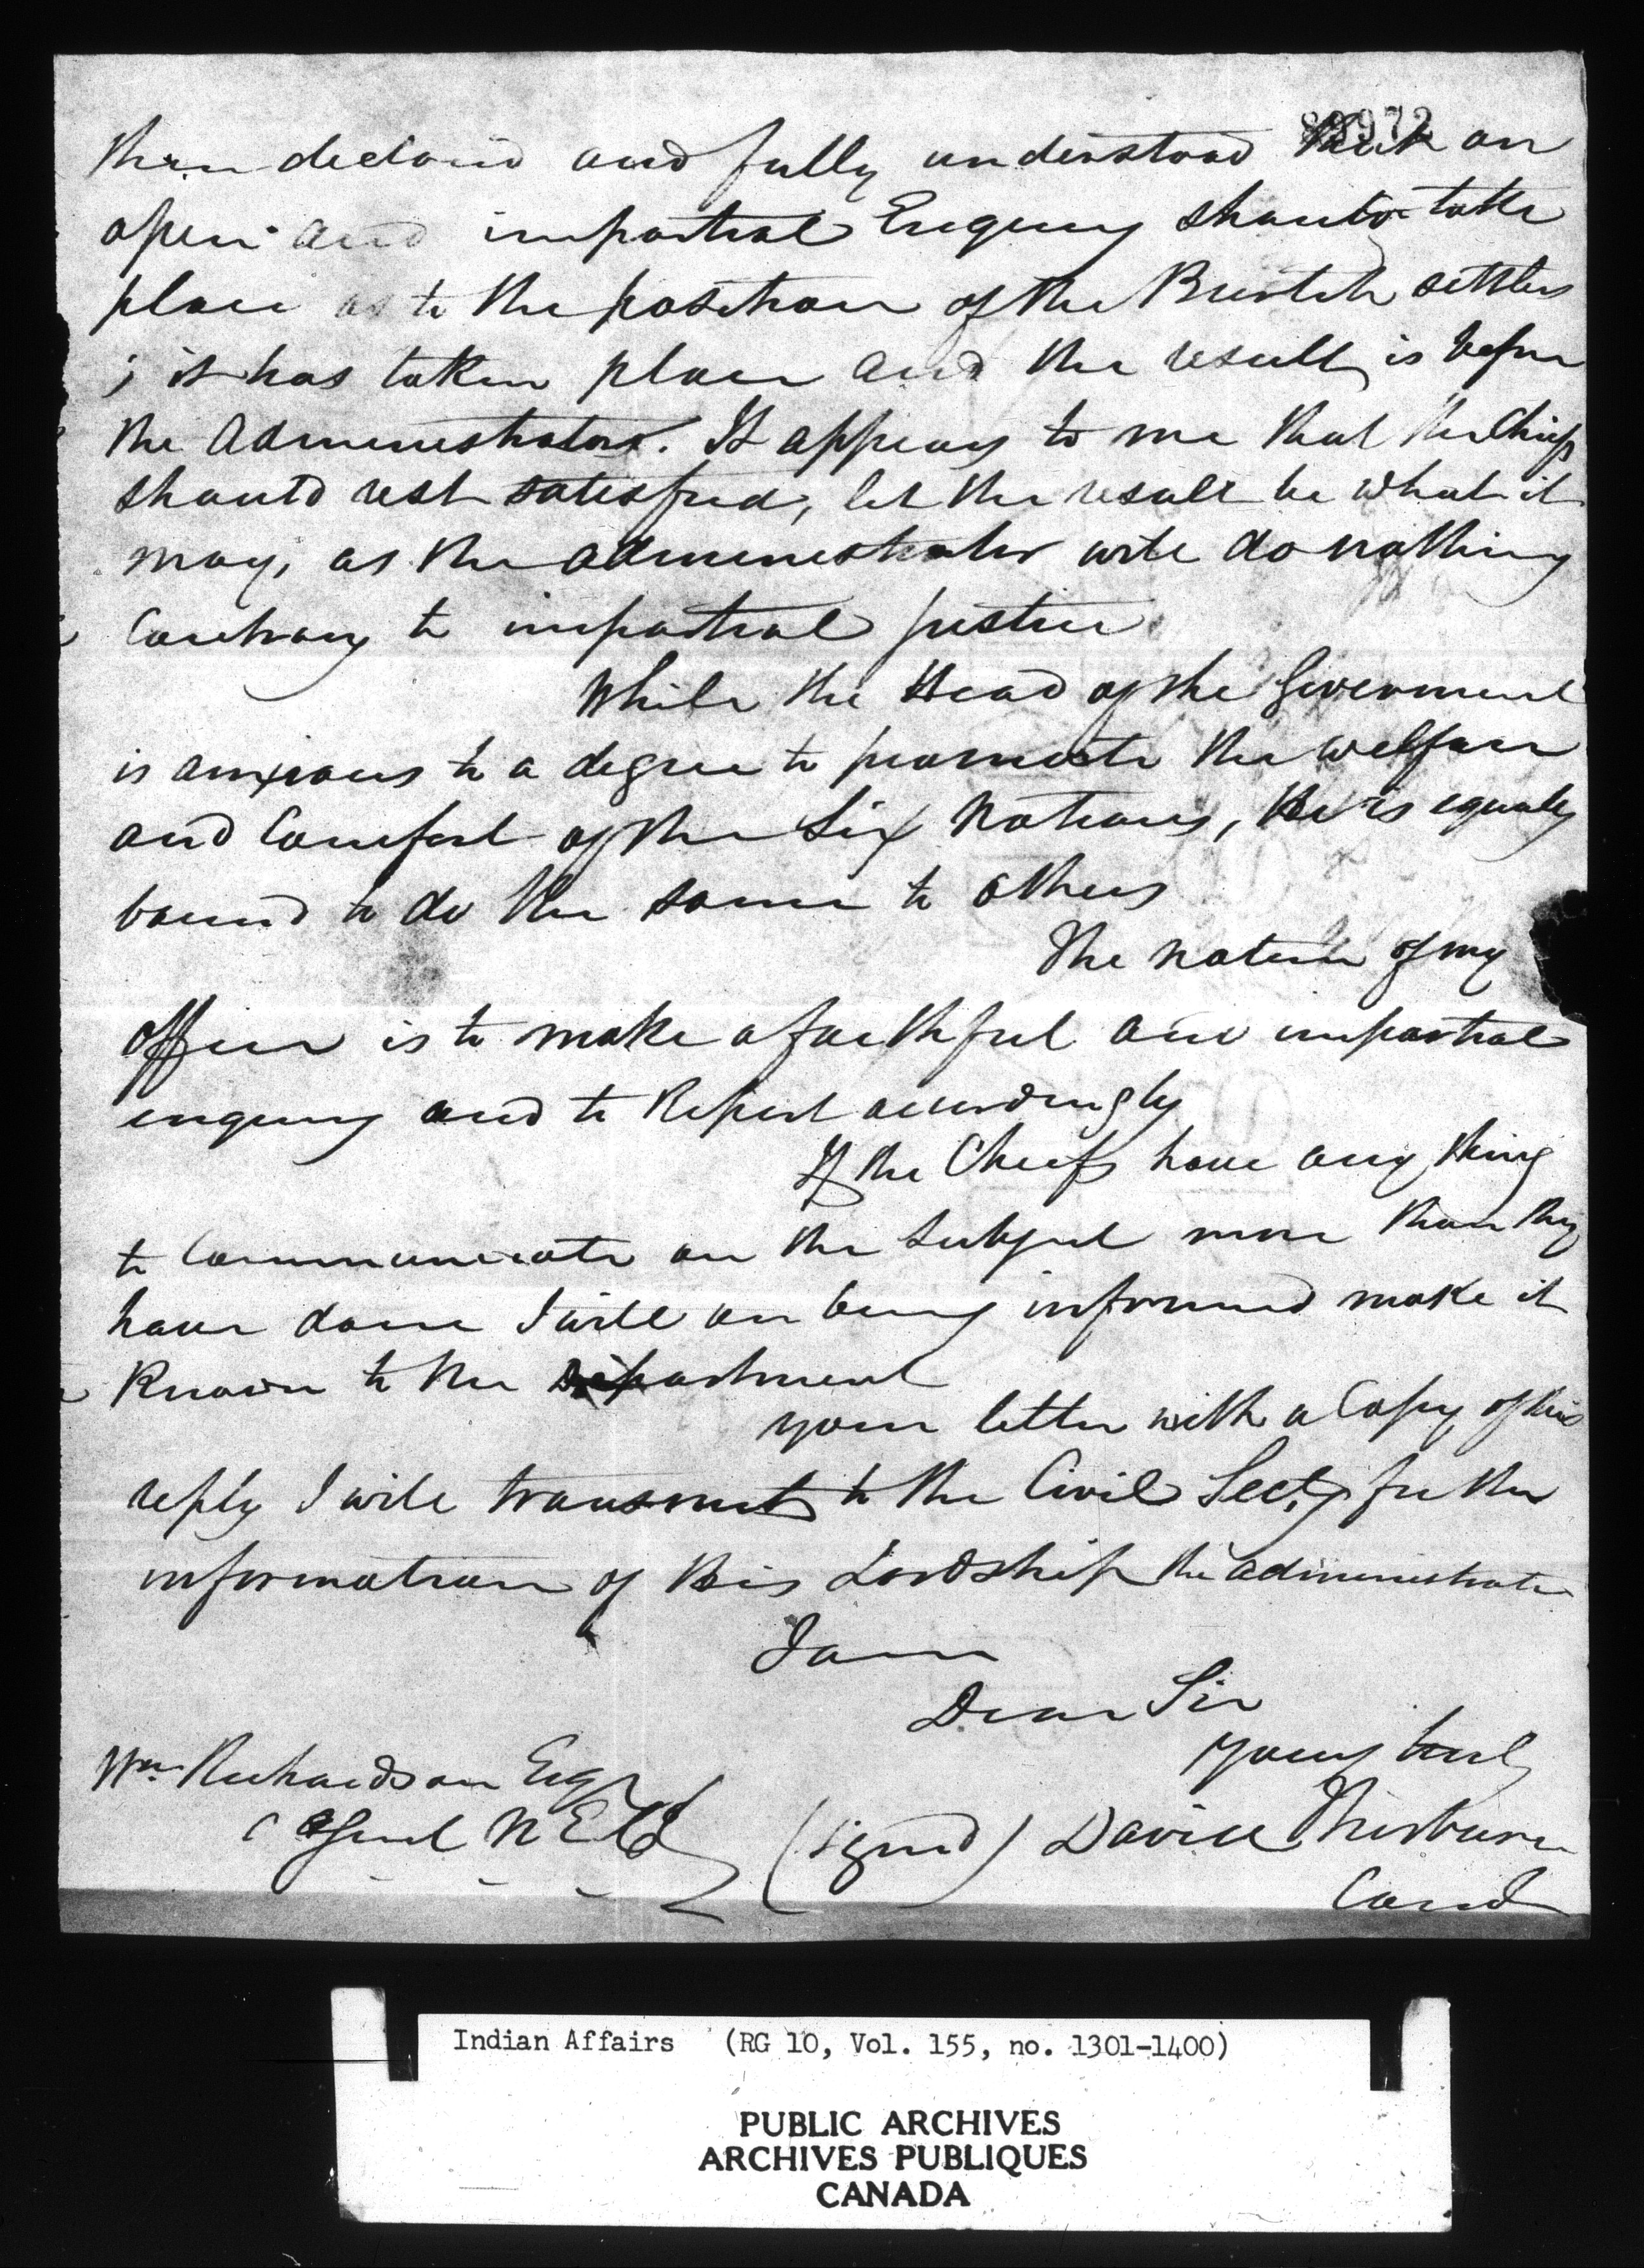 89972
then declared and fully understood that an
open and impartial Enquiry should take
place as to the position of the Burtch settlers
; it has taken place and the result is before
the Administrator. It appears to me that the Chiefs
should rest satisfied, let the result be what it
may, as the administrator will do nothing
Contrary to impartial justice
While the Head of the Government
is anxious to a degree to promote the welfare
and Comfort of the Six Nations, He is equally
bound to do the same to others
The nature of my
office is to make a faithful and impartial
enquiry and to Report accordingly
If the Chiefs have any thing
to Communicate on the Subject more than they
have done I will on being informed make it
Known to the Department
your letter with a Copy of this
reply I will transmit to the Civil Secty for the
information of His Lordship the administrator
I am
Dear Sir
yours truly
Wm Richardson Esqr
Agent N E Co
(signed) David Thorburn
Comr
Indian Affairs (RG 10, Vol. 155, no. 1301-1400)
PUBLIC ARCHIVES
ARCHIVES PUBLIQUES
CANADA